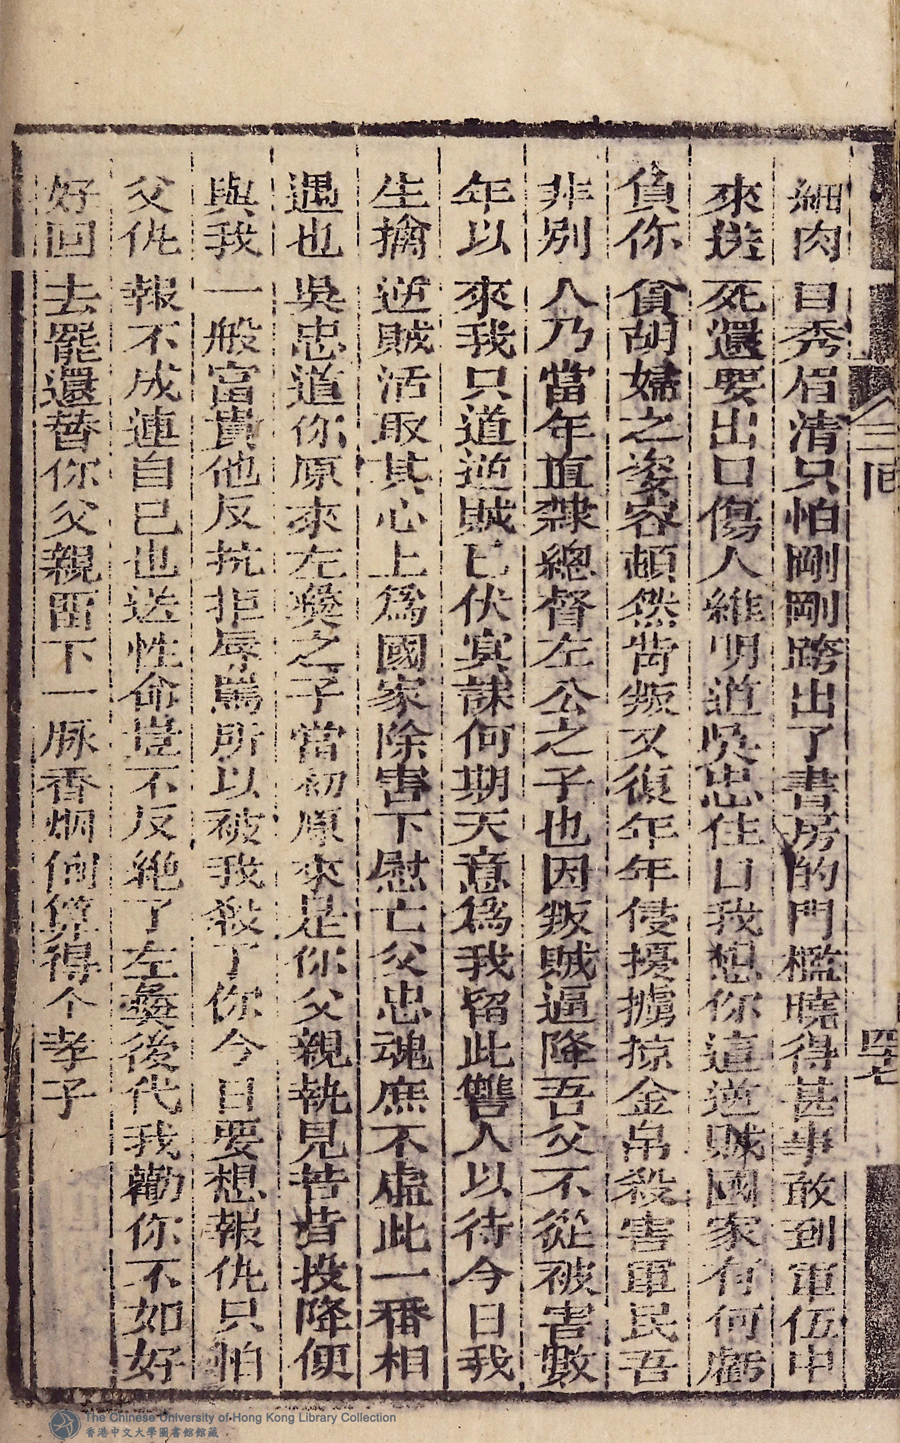 細肉目秀眉清只怕剛剛跨出了書房的門檻曉得甚事敢到軍伍中
來送死還要出口傷人維明道吳忠住口我想你這逆賊國家有何虧
負你貪胡婦之姿容頓然背叛又復年年侵擾擄掠金帛殺害軍民吾
非別人乃當年直隸總督左公之子也因叛賊逼降吾父不從被害數
年以來我只道逆賊已伏冥誅何期天意為我留此讐人以待今日我
生擒逆賊活取其心上為國家除害下慰亡父忠魂庶不虛此一番相
遇也吳忠道你原來左彝之子當初原來是你父親執見苦昔投降便
與我一般富貴他反抗拒辱罵所以被我殺了你今日要想報仇只怕
父仇報不成連自己也送性命豈不反絕了左彝後代我勸你不如好
好回去罷還替你父親留下一脉香烟倒算得个孝子
三回
四十七
The Chinese University of Hong Kong Library Collection
香港中文大學圖書館館藏